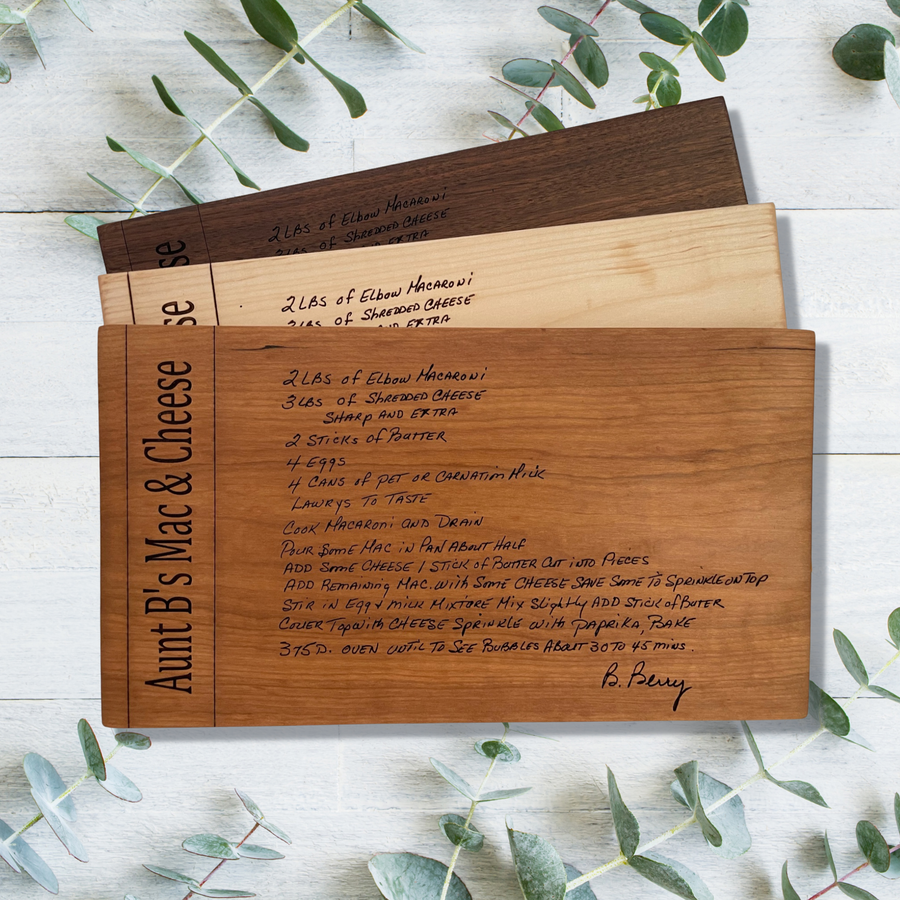 se
2 LBS of Elbow MACARONi
3 LBS of SHREDDED CHEESE
AND EXTRA
se
2 LBS of Elbow MACARONi
3 LBS of SHREDDED CHEESE
AND EXTRA
Aunt B's Mac & Cheese
2 LBS of Elbow MACARONi
3 LBS of SHREDDED CHEESE
SHARP AND EXTRA
2 STicks of BUTTER
4 Eggs
4 CANS of PET OR CARNATION Milk
LAWRYS TO TASTE
COOK MACARONi AND DRAIN
POUR SOME MAC iN PAN ABOUT HALF
ADD SOME CHEESE 1 STICK of BUTTER CUT iNTO PIECES
ADD REMAINING MAC. WITH SOME CHEESE SAVE SOME TO SPRINKLE ON TOP
STIR IN Egg & MILK MIXTURE MIX Slightly ADD STICK of BUTER
COVER TOP WITH CHEESE SPRINKLE WITH PAPRIKA, BAKE
375D. OVEN UNTIL TO SEE BUBBLES ABOUT 30 TO 45 MINS.
B. Berry